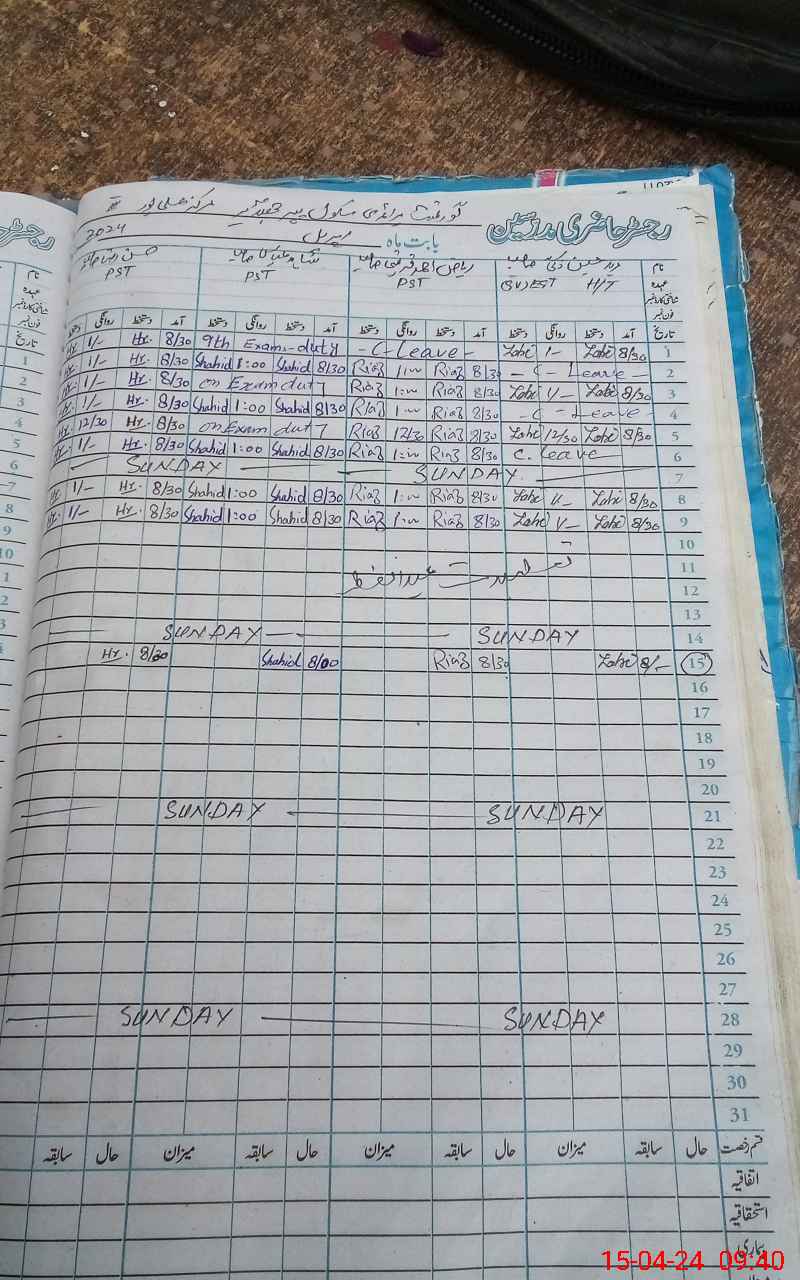 گورنمنٹ پرائمری سکول پیر مرکز علی پور
رجسٹر حاضری مدرسین بابت ماہ اپریل 2024
نام صاحب ریاض احمد قریشی صاحب شاہد صاحب حسن رضا صاحب
عہدہ (SV) EST H/T PST PST PST
فون نمبر
تاریخ آمد دستخط روانگی دستخط آمد دستخط روانگی دستخط آمد دستخط روانگی دستخط آمد دستخط روانگی دستخط
Hr. 1/- Hr. 8/30 9th Exam-duty - C-Leave - 1- 8/30 1
Hr. 1/- Hr. 8/30 Shahid 1:00 Shahid 8/30 Riaz 1:00 Riaz 8/30 - C - Leave 2
Hr. 1/- Hr. 8/30 on Exam duty Riaz 1:00 Riaz 8/30 1/- 8/30 3
Hr. 1/- Hr. 8/30 Shahid 1:00 Shahid 8/30 Riaz 1:00 Riaz 8/30 - C - Leave - 4
Hr. 12/30 Hr. 8/30 on Exam duty Riaz 12/30 Riaz 8/30 12/30 8/30 5
Hr. 1/- Hr. 8/30 Shahid 1:00 Shahid 8/30 Riaz 1:00 Riaz 8/30 C. Leave 6
SUNDAY SUNDAY 7
Hr. 1/- Hr. 8/30 Shahid 1:00 Shahid 8/30 Riaz 1:00 Riaz 8/30 1/- 8/30 8
Hr. 1/- Hr. 8/30 Shahid 1:00 Shahid 8/30 Riaz 1:00 Riaz 8/30 1/- 8/30 9
10
تعطیلات عیدالفطر 11
12
13
SUNDAY SUNDAY 14
Hr. 8/30 Shahid 8/00 Riaz 8/30 8/- 15
16
17
18
19
20
SUNDAY SUNDAY 21
22
23
24
25
26
27
SUNDAY SUNDAY 28
29
30
31
قسم رخصت حال سابقہ میزان حال سابقہ میزان حال سابقہ میزان حال سابقہ
اتفاقیہ
استحقاقیہ
بیماری
15-04-24 09:40